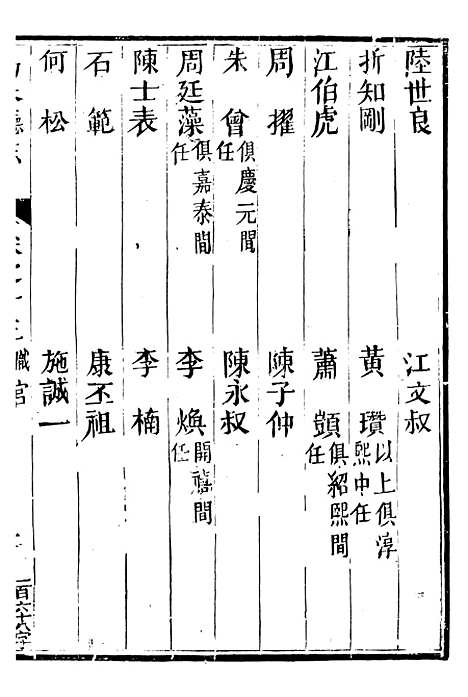 陸世良　江文叔
折知剛　黃　瓚以上俱淳熙中任
江伯虎　蕭　顗俱紹熙間任
周　擢　陳子仲
朱　曾俱慶元間任　陳永叔
周廷藻俱嘉泰間任　李　煥開禧間任
陳士表　李　楠
石　範　康丕祖
何　松　施誠一
卷之十三　職官
一百六十六字